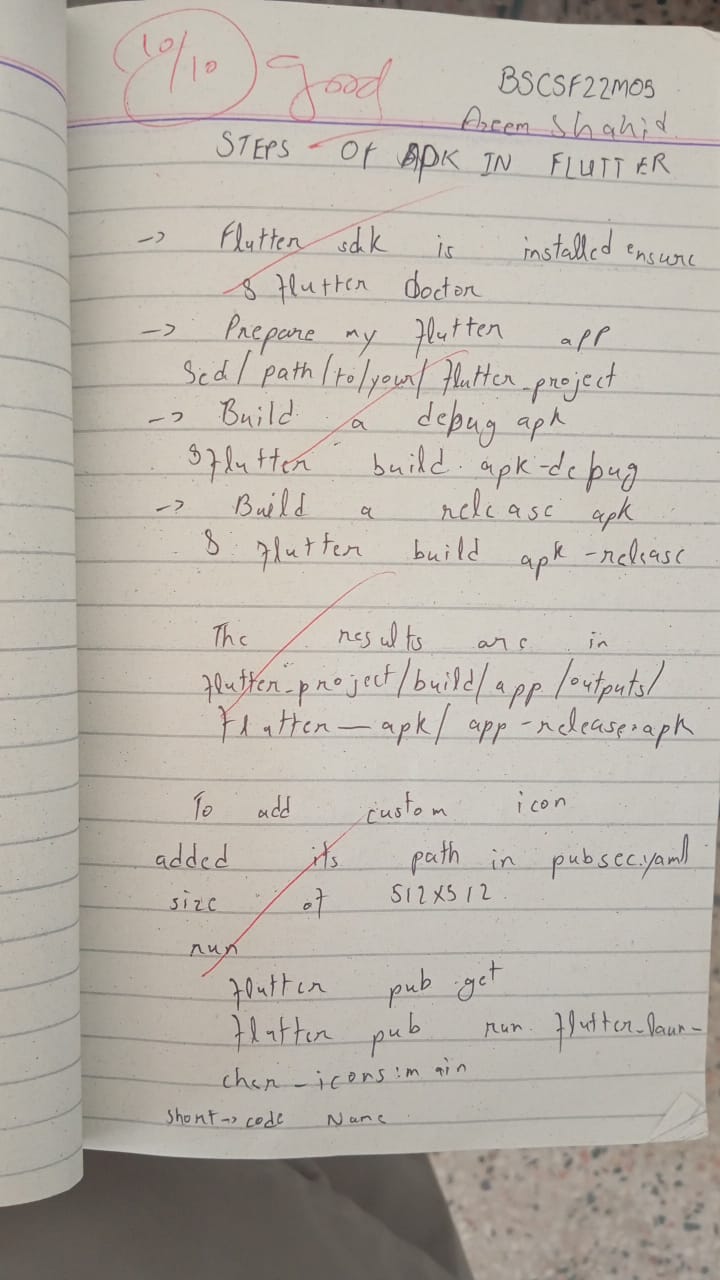 10/10 good
BSCSF22M05
Azeem Shahid
STEPS OF APK IN FLUTTER
-> Flutter sdk is installed ensure
$ flutter doctor
-> Prepare my flutter app
$cd/path/to/your/flutter_project
-> Build a debug apk
$flutter build apk-debug
-> Build a release apk
$ flutter build apk -release
The results are in
flutter-project/build/app/outputs/
flutter-apk/ app-release.apk
To add custom icon
added its path in pubsec.yaml
size of 512x512
run
flutter pub get
flutter pub run flutter-laun-
cher-icons:main
short-> code Name